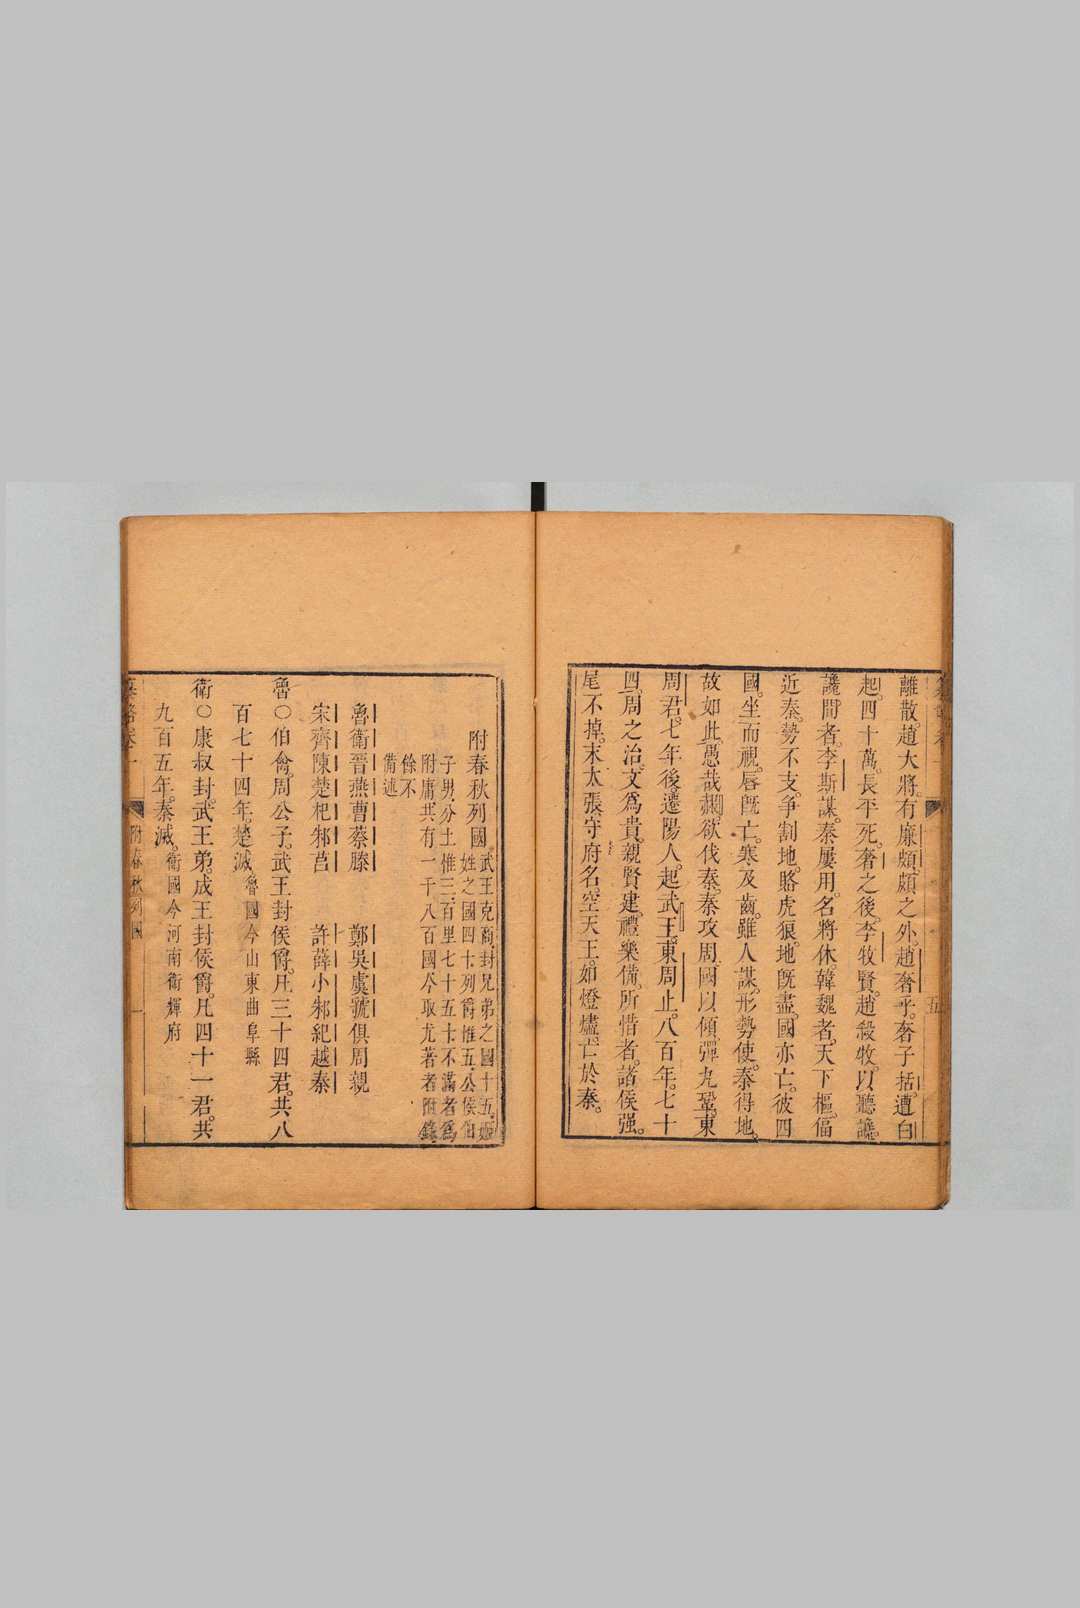 離散。趙大將。有廉頗。頗之外。趙奢乎。奢子括。遭白
起。四十萬。長平死。奢之後。李牧賢。趙殺牧。以聽讒。
讒間者。李斯謀。秦屢用。名將休。韓魏者。天下樞。偪
近秦。勢不支。爭割地。賂虎狼。地旣盡。國亦亡。彼四
國。坐而視。唇旣亡。寒及齒。雖人謀。形勢使。秦得地。
故如此。愚哉赧。欲伐秦。秦攻周。國以傾。彈丸鞏。東
周君。七年後。遷陽人。起武王。東周止。八百年。七十
四。周之治。文爲貴。親賢建。禮樂備。所惜者。諸侯强。
尾不掉。末太張。守府名。空天王。如燈燼。亡於秦。
五
附春秋列國。武王克商。封兄弟之國十五。姬
姓之國四十。列爵惟五。公侯伯
子男。分土惟三。百里七十五十。不滿者爲
附庸。共有一千八百國。今取尤著者附錄。
餘不
備述
魯衛晉燕曹蔡滕 鄭吳虞虢俱周親
宋齊陳楚杞邾莒 許薛小邾紀越秦
魯○伯禽。周公子。武王封侯爵。凡三十四君。共八
百七十四年。楚滅。魯國今山東曲阜縣
衛○康叔封。武王弟。成王封侯爵。凡四十一君。共
九百五年。秦滅。衛國今河南衛輝府
附春秋列國